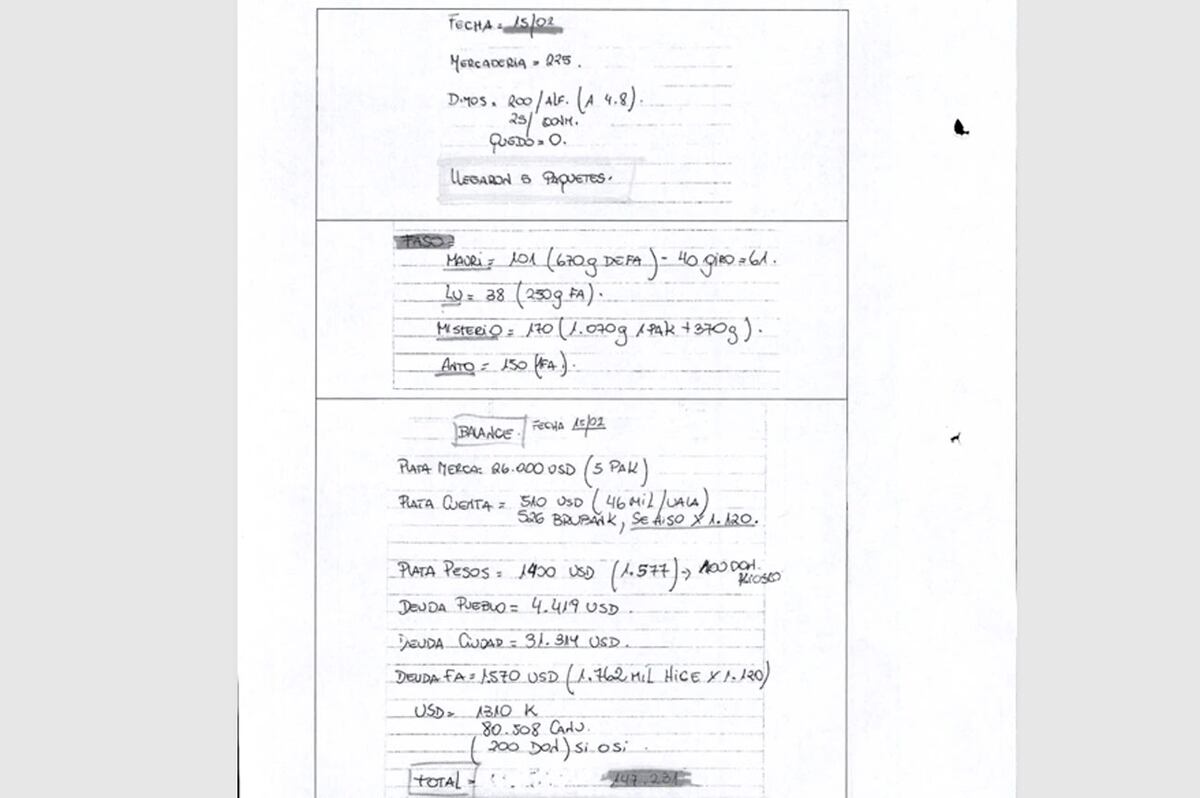 FECHA = 15/02
MERCADERIA = 225.
DIMOS = 200/ALF. (A 4.8).
25/ DONM.
QUEDO = 0.
LLEGARON 5 PAQUETES.
FASO =
MAURI = 101 (670g DE FA) - 40 giRO = 61.
LU = 38 (250g FA).
MISTERIO = 170 (1.070g 1 PAK + 370g).
ANTO = 150 (1FA.).
BALANCE. FECHA 15/02
PLATA MERCA: 26.000 USD (5 PAK)
PLATA CUENTA = 510 USD (46 MIL/UALA)
526 BRUBANK, SE HISO X 1.120.
PLATA PESOS = 1400 USD (1.577) → 100 DON.
KIOSCO
DEUDA PUEBLO = 4.419 USD.
DEUDA CIUDAD = 31.314 USD.
DEUDA FA = 1570 USD (1.762 MIL HICE X 1.120)
USD = 1310 K
80.508 CANU.
(200 DON) Si O Si.
TOTAL = 147.231